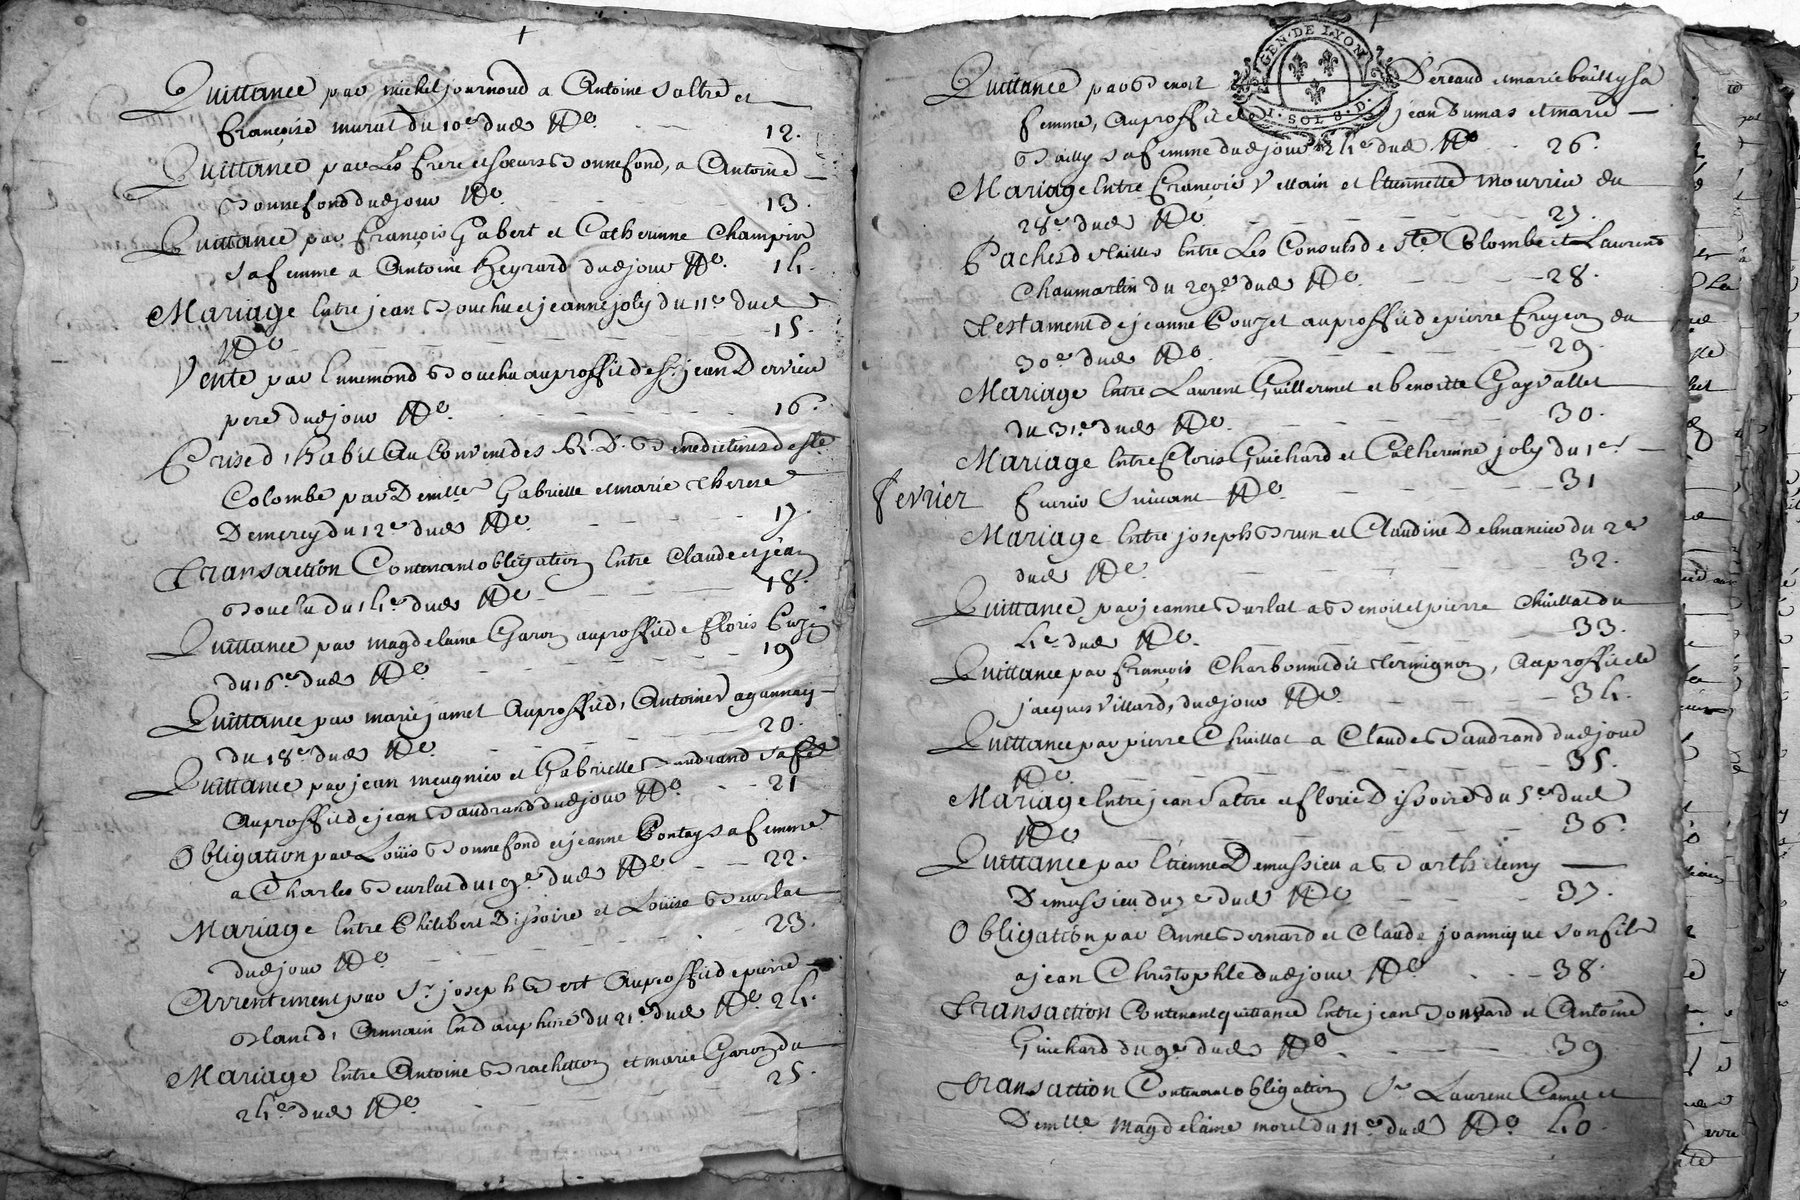 Quittance par michel journoud a Antoine Saltre et
françoise murat du 10e dud No 12.
Quittance par Les frere et soeurs Bonnefond, a Antoine
Bonnefond dud jour No 13.
Quittance par françois Gabert et Catherinne Champin
sa femme a Antoine Heyrard dud jour No 14.
Mariage Entre jean Bouchu et jeanne joly du 11e dud
No 15.
Vente par Ennemond Bouchu au proffit de Sr jean Dervieu
pere dud jour No 16.
Prise d'habit Au Convent des R. D. Benedictines de Ste
Colombe par Demlle Gabrielle et marie Therese
Demerey du 12e dud No 17.
Transaction Contenant obligation Entre Claude et jean
Bouchu du 14e dud No 18.
Quittance par magdelaine Garon au proffit de floris
du 16e dud No 19
Quittance par marie jamet Au proffit d'Antoine
du 18e dud No 20.
Quittance par jean meugnier et Gabrielle Baudrand sa fe
Au proffit de jean Baudrand dud jour No 21
Obligation par Loüis Bonnefond et jeanne Pontay sa femme
a Charles Beurlat du 19e dud No 22.
Mariage Entre Philibert Dissoire et Loüise Beurlat
dud jour No 23.
Arrentement par Sr joseph Bert Au proffit de pierre
Blanc d' Annain En Dauphiné du 21e dud No 24.
Mariage Entre Antoine Brachetton et marie Garon du
24e dud No 25.
GEN. DE LYON
I. SOL 8. D.
Quittance par Benoit Dereaud et marie bailly sa
femme, Au proffit de jean Dumas et marie
Bailly sa femme dud jour 24e dud No 26.
Mariage Entre François Vellain et Etiennette mourrin du
28e dud No 27.
Paches de tailles Entre Les Consuls de Ste Colombe et Laurent
Chaumartin du 29e dud No 28.
Testament de jeanne Pouzet au proffit de pierre du
30e dud No 29.
Mariage Entre Laurent Guillermet et benoitte Gayvallet
du 31e dud No 30.
Mariage Entre floris Guichard et Catherinne joly du 1er
fevrier
fevrier Suivant No 31
Mariage Entre joseph Brun et Claudine Delmancieu du 2e
dud No 32.
Quittance par jeanne Burlat a Benoit et pierre Chuillat du
4e dud No 33.
Quittance par François Charbonnet dit Termignon, Au proffit de
jacques Villard, dud jour No 34.
Quittance par pierre Chuillat a Claude Baudrand dud jour
No 35.
Mariage Entre jean Saltre et florie Dissoire du 5e dud
No 36.
Quittance par Etienne Demussieu a Barthelemy
Demussieu du 7e dud No 37.
Obligation par Anne Bernard et Claude joannique son fils
a jean Christophle dud jour No 38.
Transaction Contenant quittance Entre jean Bonnard et Antoine
Guichard du 9e dud No 39
Transaction Contenant obligation Sr Laurent Camet et
Demlle magdelaine morel du 11e dud No 40.